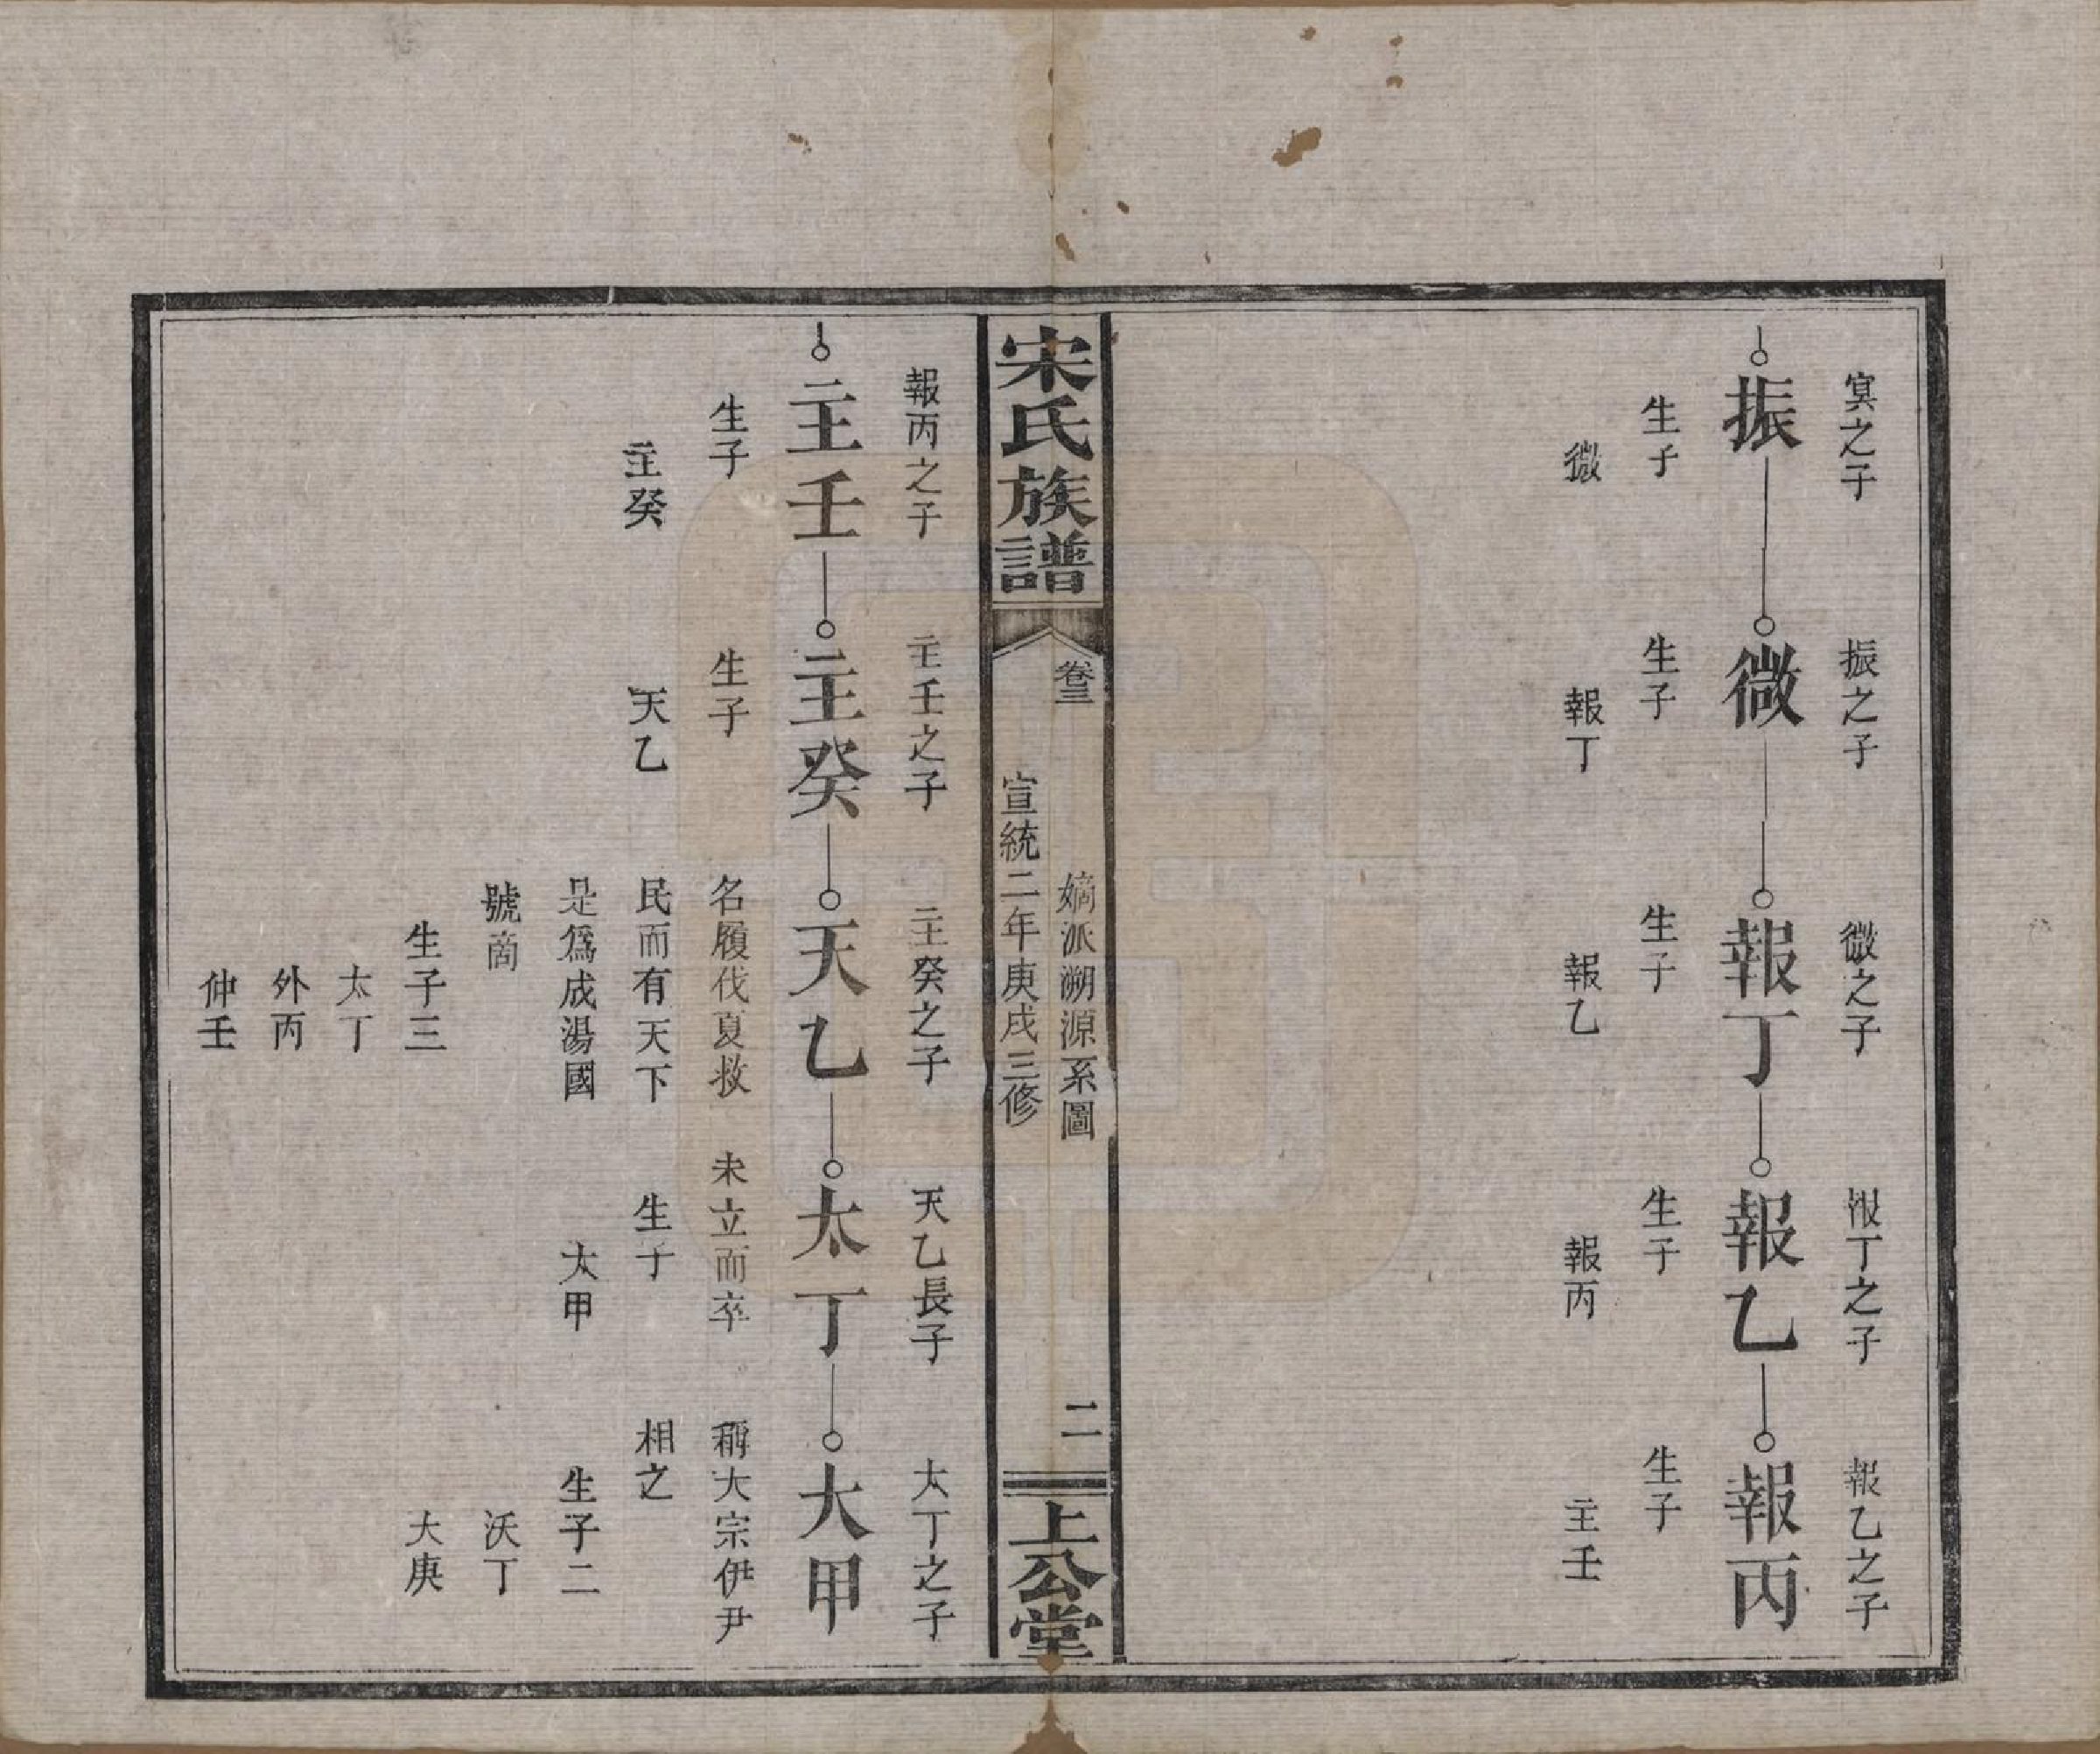 冥之子
振
生子
微
振之子
微
生子
報丁
微之子
報丁
生子
報乙
報丁之子
報乙
生子
報丙
報乙之子
報丙
生子
主壬
宋氏族譜
卷三
嫡派溯源系圖
宣統二年庚戌三修
二
上公堂
報丙之子
主壬
生子
主癸
主壬之子
主癸
生子
天乙
主癸之子
天乙
名履伐夏救
民而有天下
是爲成湯國
號商
生子三
太丁
外丙
仲壬
天乙長子
太丁
未立而卒
生子
太甲
太丁之子
太甲
稱太宗伊尹
相之
生子二
沃丁
大庚